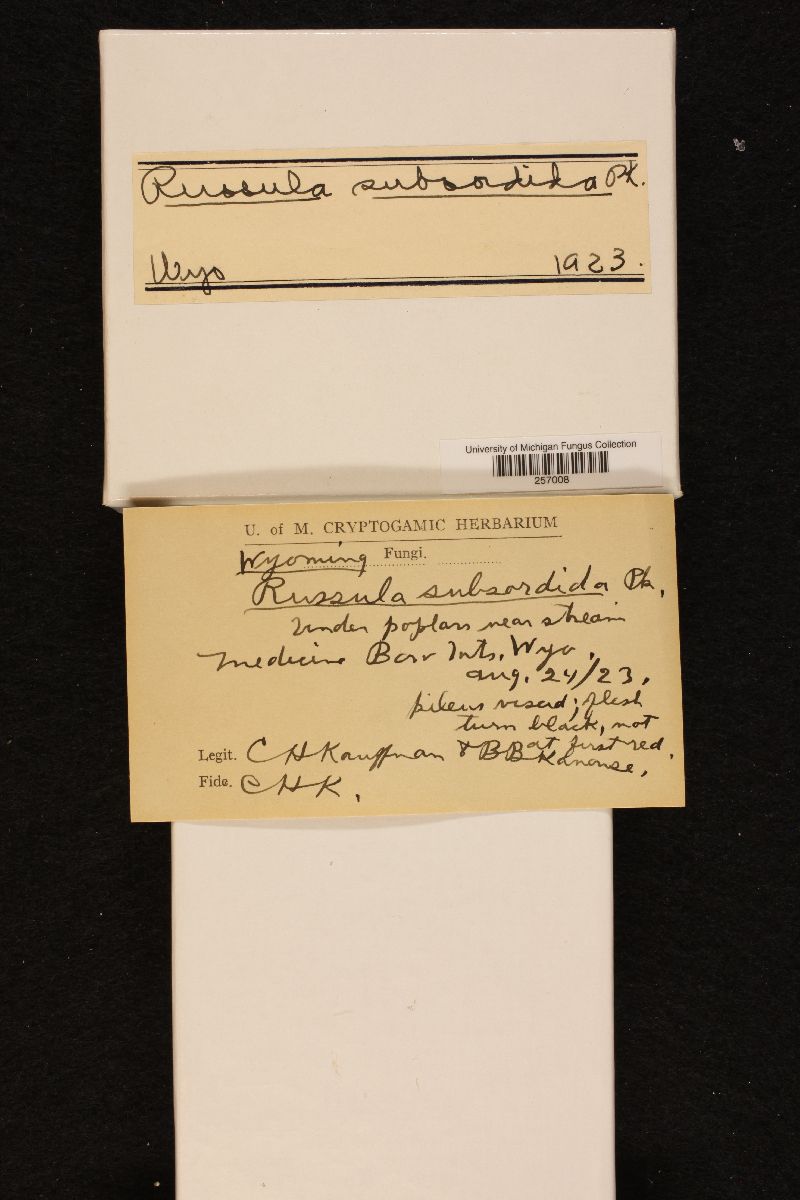 Russula subsordida Pk.
Wyo 1923.
University of Michigan Fungus Collection
257008
U. of M. CRYPTOGAMIC HERBARIUM
Wyoming Fungi.
Russula subsordida Pk.
Under poplars near stream
Medicine Bow Mts. Wyo.
Aug. 24/23.
pileus viscid; flesh
turn black, not
at first red.
Legit. C H Kauffman & B B Kanouse.
Fide. C H K.